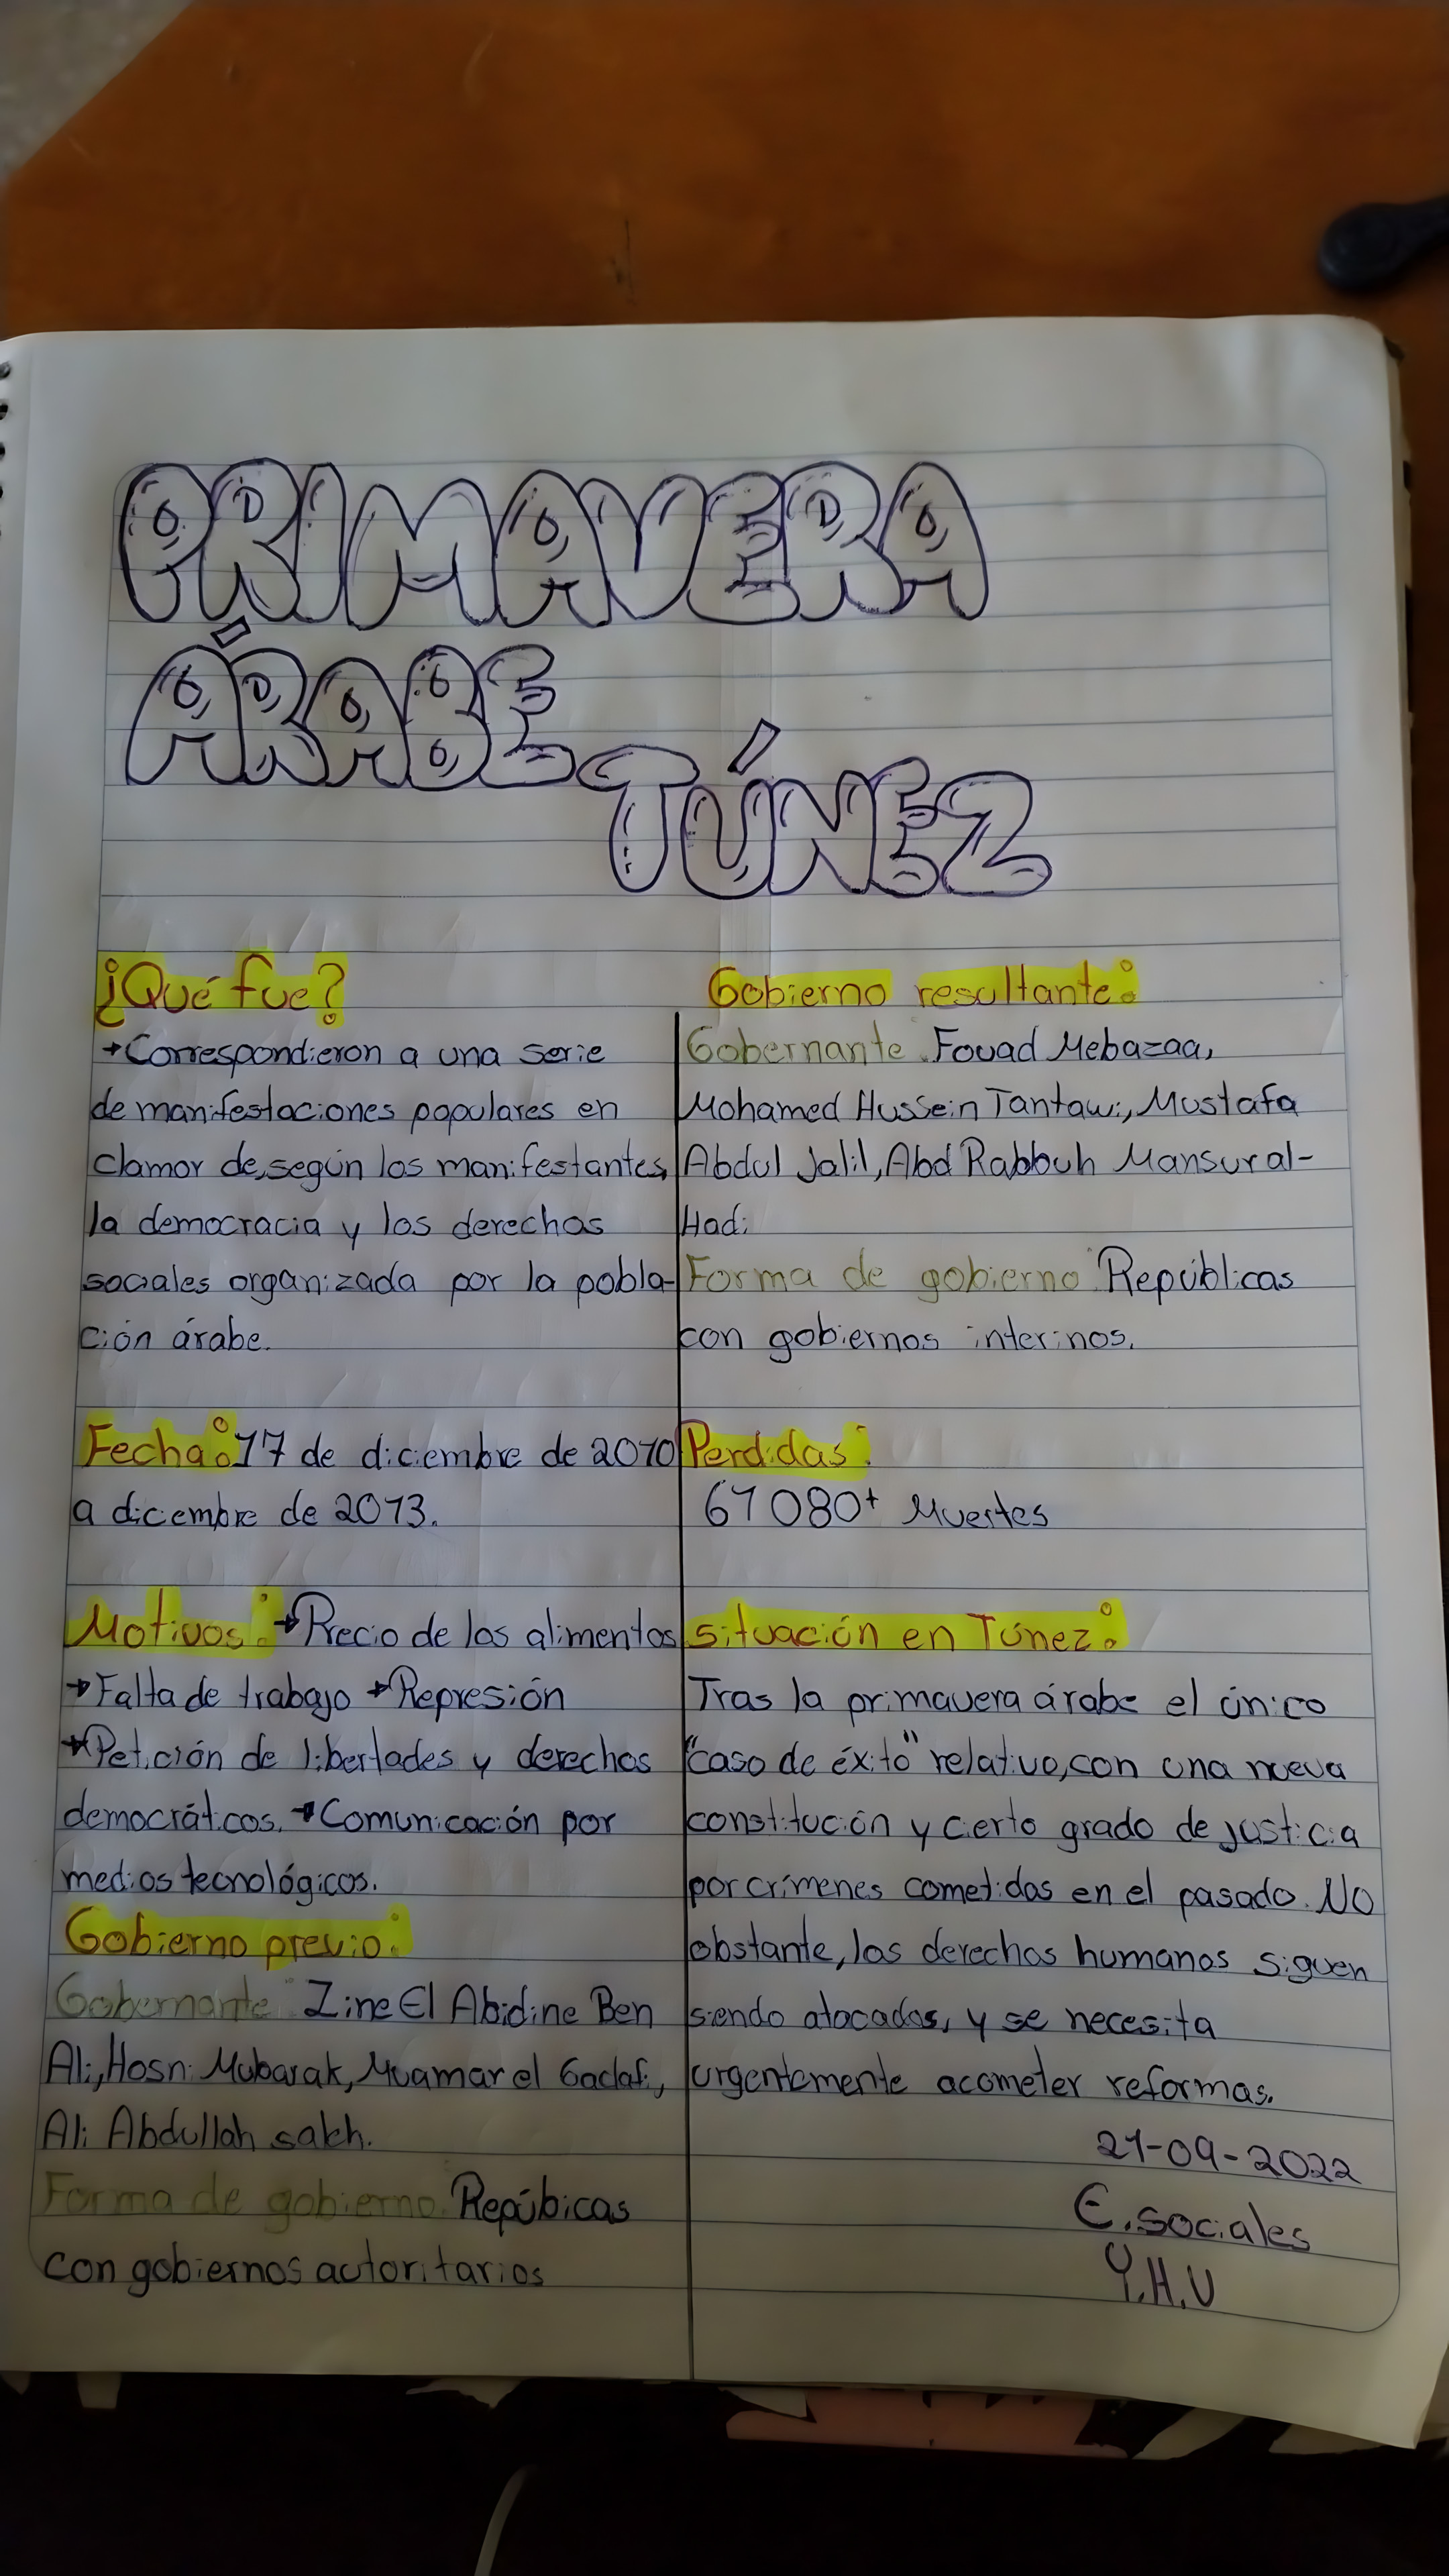 PRIMAVERA
ÁRABE
TÚNEZ
¿Qué fue?
→Correspondieron a una serie
de manifestaciones populares en
clamor de, según los manifestantes,
la democracia y los derechos
sociales organizada por la pobla-
ción árabe.
Fecha: 17 de diciembre de 2010
a diciembre de 2013.
Motivos: →Precio de los alimentos
→Falta de trabajo →Represión
→Petición de libertades y derechos
democráticos. →Comunicación por
medios tecnológicos.
Gobierno previo:
Gobernante: Zine El Abidine Ben
Ali, Hosni Mubarak, Muamar el Gadafi,
Ali Abdullah saleh.
Forma de gobierno: Repúbicas
con gobiernos autoritarios
Gobierno resultante:
Gobernante: Fouad Mebazaa,
Mohamed Hussein Tantawi, Mustafa
Abdul Jalil, Abd Rabbuh Mansur al-
Hadi
Forma de gobierno: Repúblicas
con gobiernos interinos.
Perdidas:
61 080+ Muertes
situación en Túnez:
Tras la primavera árabe el único
"caso de éxito" relativo, con una nueva
constitución y cierto grado de justicia
por crímenes cometidos en el pasado. NO
obstante, los derechos humanos siguen
siendo atacados, y se necesita
urgentemente acometer reformas.
21-09-2022
E. sociales
Y.H.U